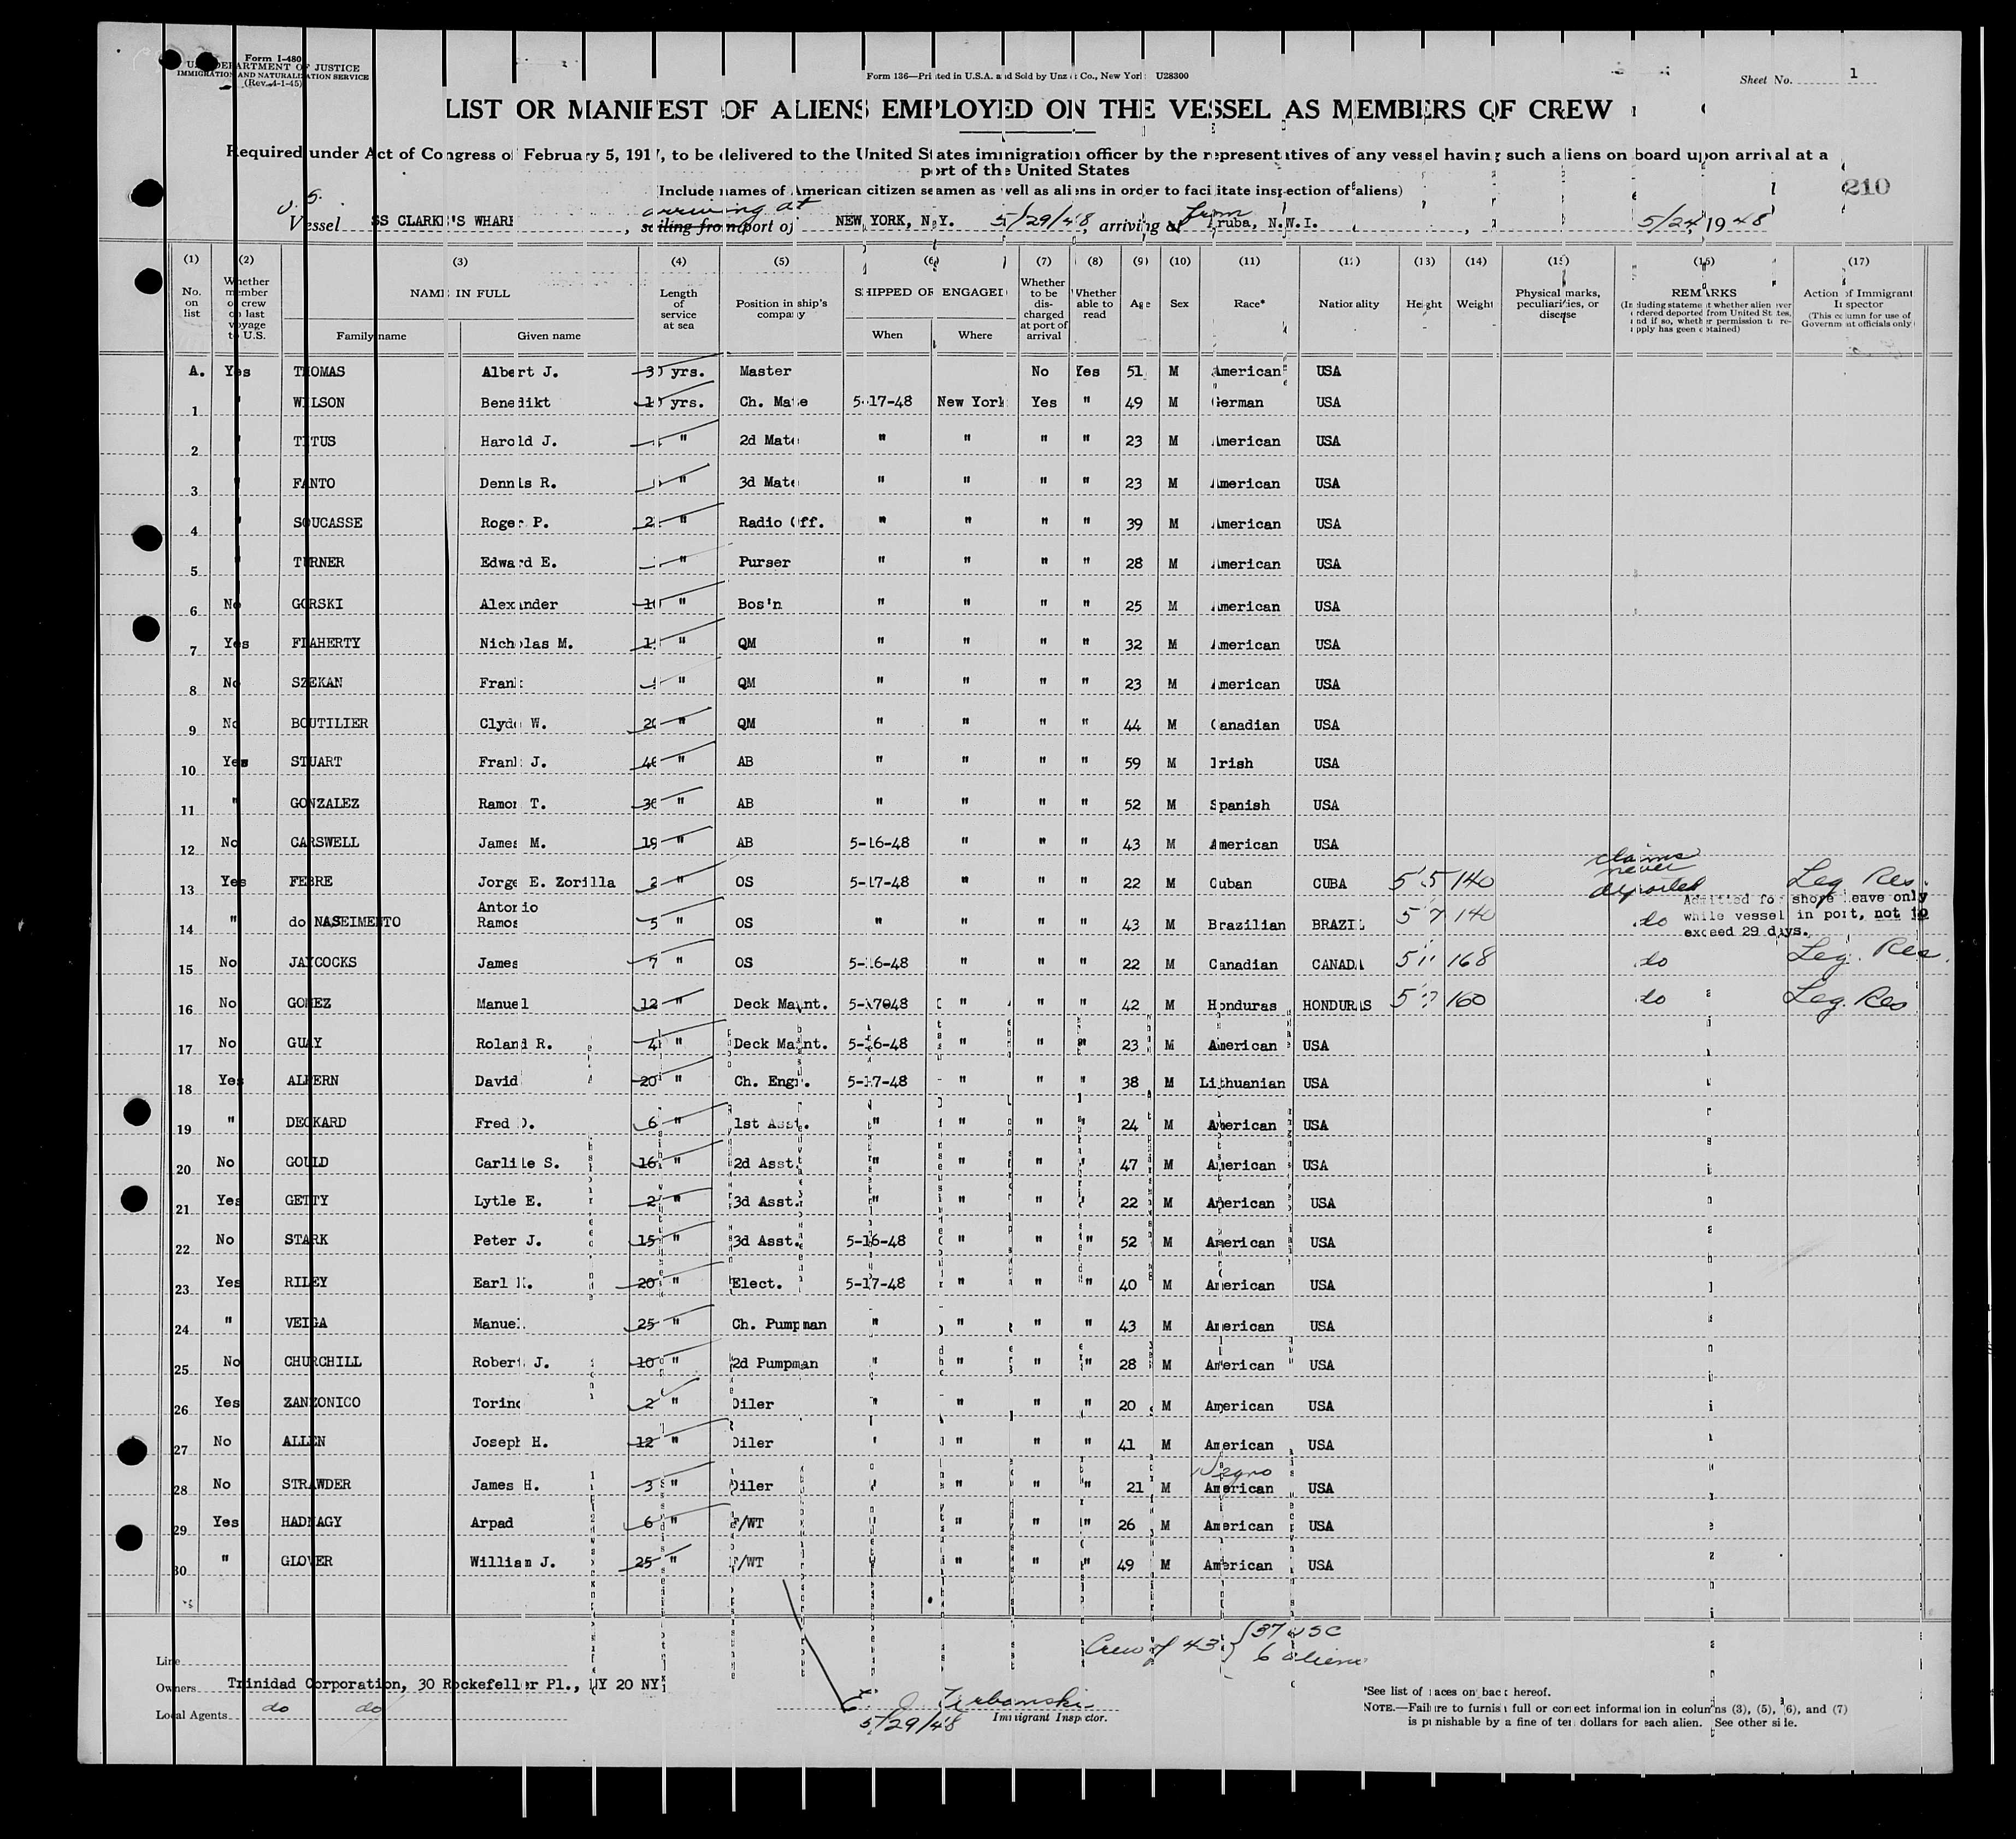 Form I-480
U.S. DEPARTMENT OF JUSTICE
IMMIGRATION AND NATURALIZATION SERVICE
(Rev. 4-1-45)
Form 136—Printed in U.S.A. and Sold by Unz & Co., New York U28300
Sheet No. 1
LIST OR MANIFEST OF ALIENS EMPLOYED ON THE VESSEL AS MEMBERS OF CREW
Required under Act of Congress of February 5, 1917, to be delivered to the United States immigration officer by the representatives of any vessel having such aliens on board upon arrival at a
port of the United States
(Include names of American citizen seamen as well as aliens in order to facilitate inspection of aliens)
210
U.S.
arriving at
from
Vessel SS CLARKE'S WHARF, sailing from port of NEW YORK, N.Y. 5/29/48, arriving at Aruba, N.W.I., 5/24, 1948
(1) (2) (3) (4) (5) (6) (7) (8) (9) (10) (11) (12) (13) (14) (15) (16) (17)
No. on list
Whether member of crew on last voyage to U.S.
NAME IN FULL
Family name
Given name
Length of service at sea
Position in ship's company
SHIPPED OR ENGAGED
When
Where
Whether to be discharged at port of arrival
Whether able to read
Age
Sex
Race*
Nationality
Height
Weight
Physical marks, peculiarities, or disease
REMARKS
(Including statement whether alien ever ordered deported from United States, and if so, whether permission to reapply has geen obtained)
Action of Immigrant Inspector
(This column for use of Government officials only)
A. Yes THOMAS Albert J. 30 yrs. Master No Yes 51 M American USA
1 " WILSON Benedikt 10 yrs. Ch. Mate 5-17-48 New York Yes " 49 M German USA
2 " TITUS Harold J. " 2d Mate " " " " 23 M American USA
3 " FANTO Dennis R. " 3d Mate " " " " 23 M American USA
4 " SOUCASSE Roger P. " Radio Off. " " " " 39 M American USA
5 " TURNER Edward E. " Purser " " " " 28 M American USA
6 No GORSKI Alexander 10 " Bos'n " " " " 25 M American USA
7 Yes FLAHERTY Nicholas M. " QM " " " " 32 M American USA
8 No SZEKAN Frank " QM " " " " 23 M American USA
9 No BOUTILIER Clyde W. 20 " QM " " " " 44 M Canadian USA
10 Yes STUART Frank J. 40 " AB " " " " 59 M Irish USA
11 " GONZALEZ Ramon T. 30 " AB " " " " 52 M Spanish USA
12 No CARSWELL James M. 19 " AB 5-16-48 " " " 43 M American USA
13 Yes FEBRE Jorge E. Zorilla 2 " OS 5-17-48 " " " 22 M Cuban CUBA 5'5 140 claims never deported Leg Res.
14 " do NASEIMENTO Antonio Ramos 5 " OS " " " " 43 M Brazilian BRAZIL 5 7 140 do Admitted for shore leave only while vessel in port, not to exceed 29 days.
15 No JAYCOCKS James 7 " OS 5-16-48 " " " 22 M Canadian CANADA 5 11 168 do Leg. Res.
16 No GOMEZ Manuel 12 " Deck Maint. 5-17048 " " " 42 M Honduras HONDURAS 5 7 160 do Leg. Res
17 No GUAY Roland R. 4 " Deck Maint. 5-16-48 " " " 23 M American USA
18 Yes ALPERN David 20 " Ch. Engr. 5-17-48 " " " 38 M Lithuanian USA
19 " DECKARD Fred D. 6 " 1st Asst. " " " " 24 M American USA
20 No GOULD Carlile S. 16 " 2d Asst. " " " " 47 M American USA
21 Yes GETTY Lytle E. 2 " 3d Asst. " " " " 22 M American USA
22 No STARK Peter J. 15 " 3d Asst. 5-16-48 " " " 52 M American USA
23 Yes RILEY Earl 20 " Elect. 5-17-48 " " " 40 M American USA
24 " VEIGA Manuel 25 " Ch. Pumpman " " " " 43 M American USA
25 No CHURCHILL Robert J. 10 " 2d Pumpman " " " " 28 M American USA
26 Yes ZANZONICO Torino 2 " Oiler " " " " 20 M American USA
27 No ALLEN Joseph H. 12 " Oiler " " " " 41 M American USA
28 No STRAWDER James H. 3 " Oiler " " " " 21 M Negro American USA
29 Yes HADNAGY Arpad 6 " F/WT " " " " 26 M American USA
30 " GLOVER William J. 25 " F/WT " " " " 49 M American USA
Crew of 43 { 37 USC
6 aliens
Line
Owners Trinidad Corporation, 30 Rockefeller Pl., NY 20 NY
Local Agents do do
E. J. Urbanski
5/29/48 Immigrant Inspector.
*See list of races on back hereof.
NOTE.—Failure to furnish full or correct information in columns (3), (5), (6), and (7)
is punishable by a fine of ten dollars for each alien. See other side.